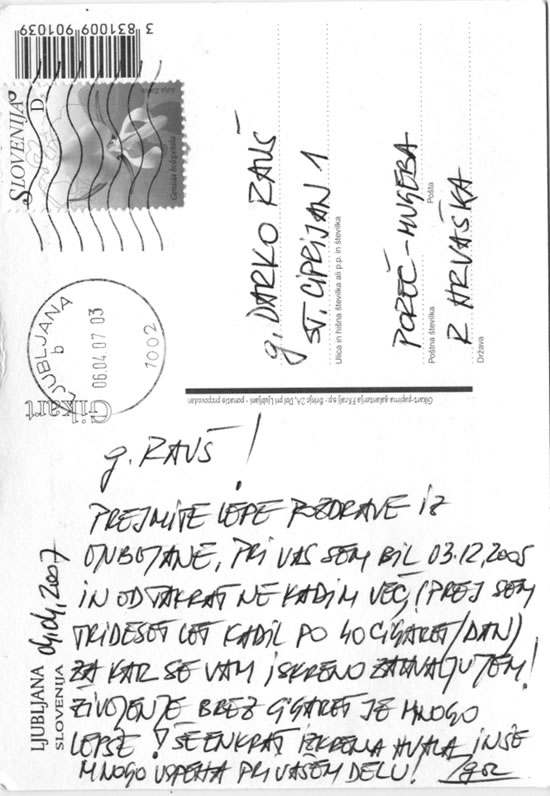 3 831009 901039
SLOVENIJA
D
LJUBLJANA
b
06.04.07 03
1002
Gikart
g. DARKO RAUŠ
ST. CIPRIJAN 1
Ulica in hišna številka ali p.p. in številka
POREČ-MUGEBA
Poštna številka
Pošta
R HRVAŠKA
Država
g. RAUŠ!
PREJMITE LEPE POZDRAVE IZ
LJUBLJANE, PRI VAS SEM BIL 03.12,2005
IN OD TAKRAT NE KADIM VEČ, (PREJ SEM
TRIDESET LET KADIL PO 40 CIGARET/DAN)
ZA KAR SE VAM ISKRENO ZAHVALJUJEM!
ŽIVLJENJE BREZ CIGARET JE MNOGO
LEPŠE! ŠE ENKRAT ISKRENA HVALA IN ŠE
MNOGO USPEHA PRI VAŠEM DELU!
LJUBLJANA
SLOVENIJA